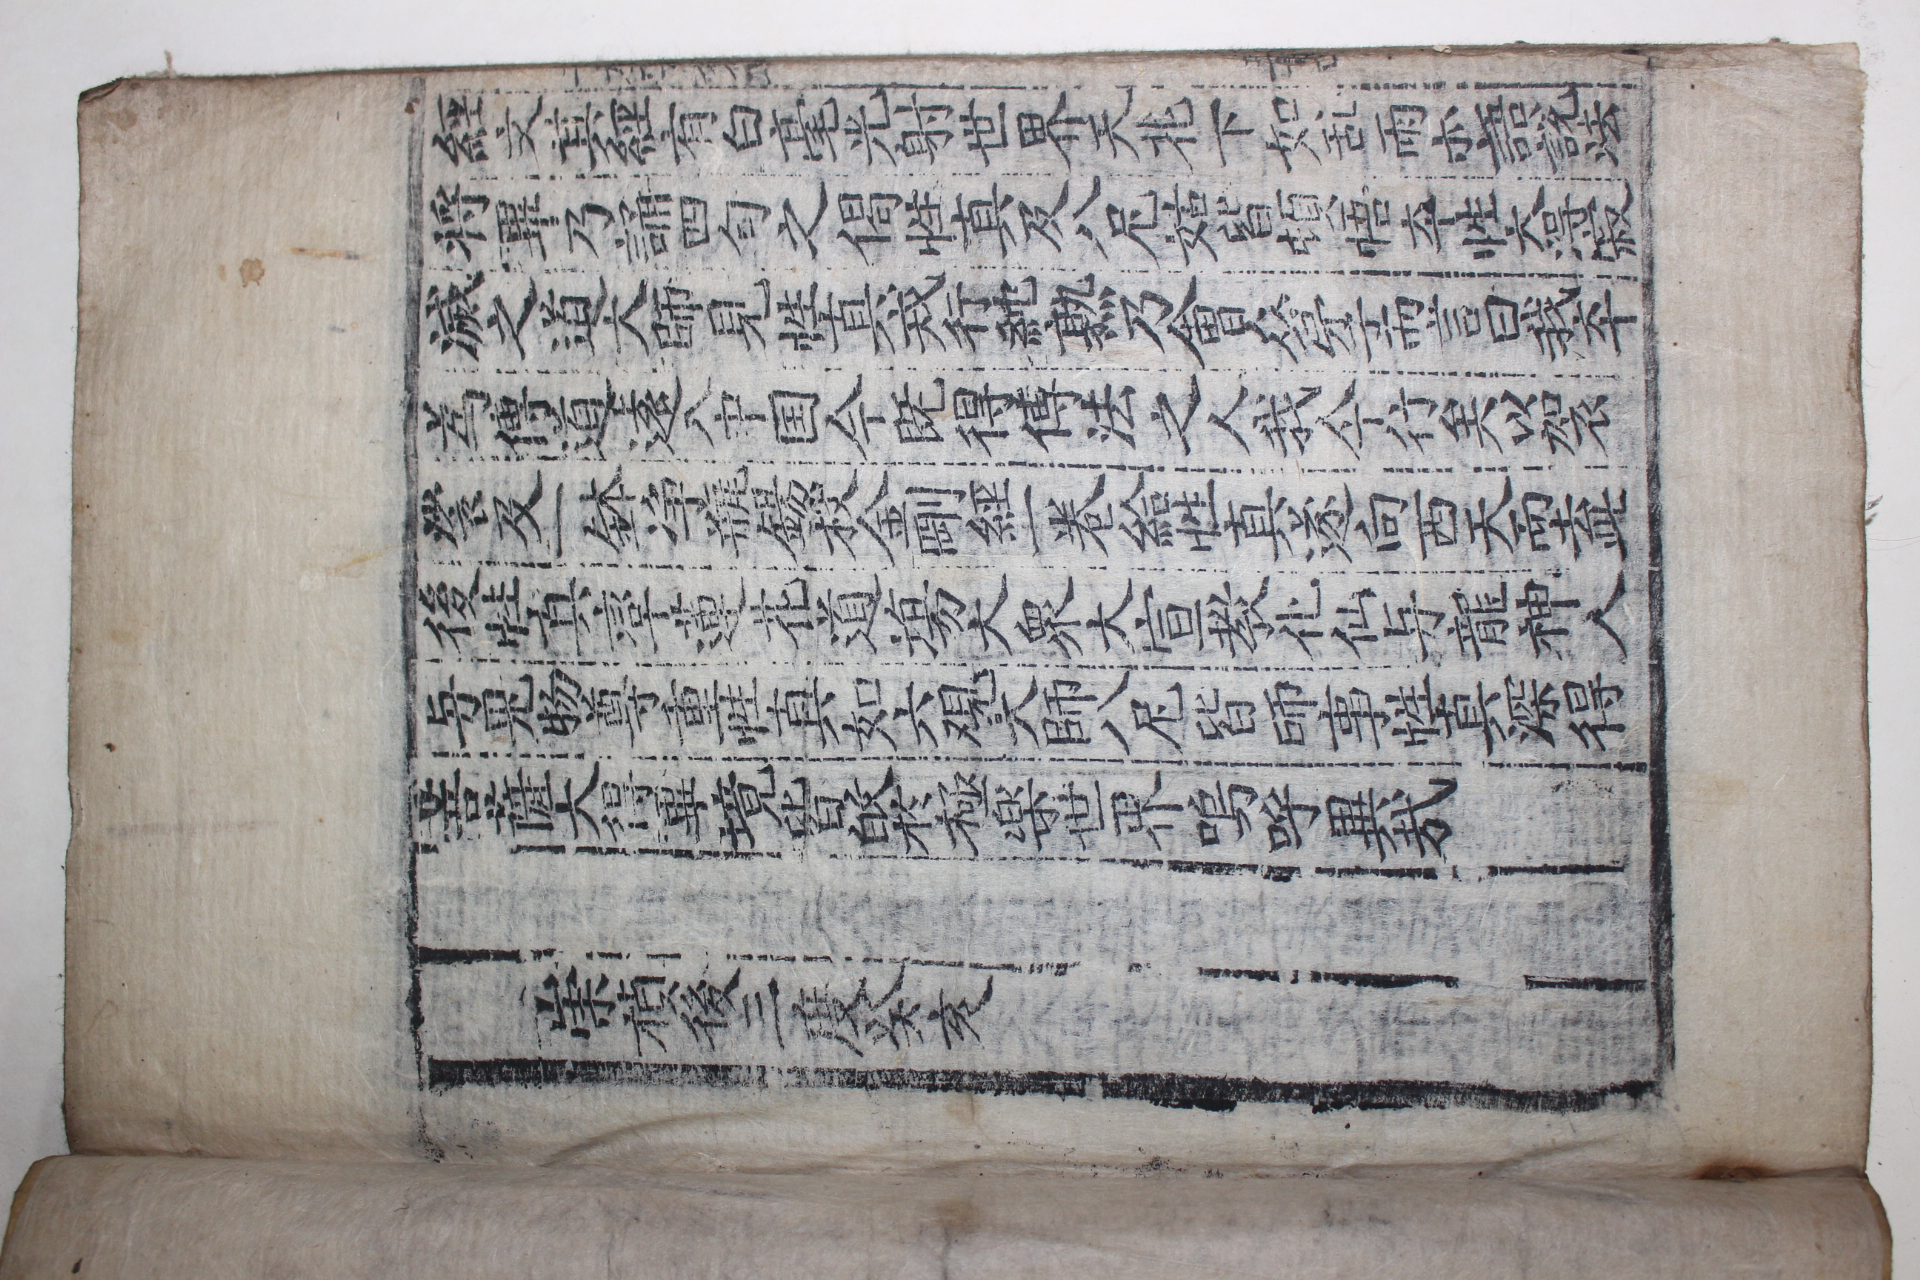 經文其經有白毫光射世界天花下如乱雨亦語說法
将畢乃誦四句之偈性真及八尼姑皆頓悟卒性大淂寂
滅之道大師見性真戒行純熟乃會大衆弟子而言曰我卒
為傳道遠入中国今既得傳法之人我今行矣以袈
裟及一鉢净甁錫杖金剛經一卷給性真遂向西天而去此
後性真率蓮花道塲大衆大宣教化仙与龍神人
与鬼物尊重性真如六觀大師八尼皆師事性真深得
菩薩大得畢境皆皈於極楽世界嗚呼異哉
崇禎後三度癸亥